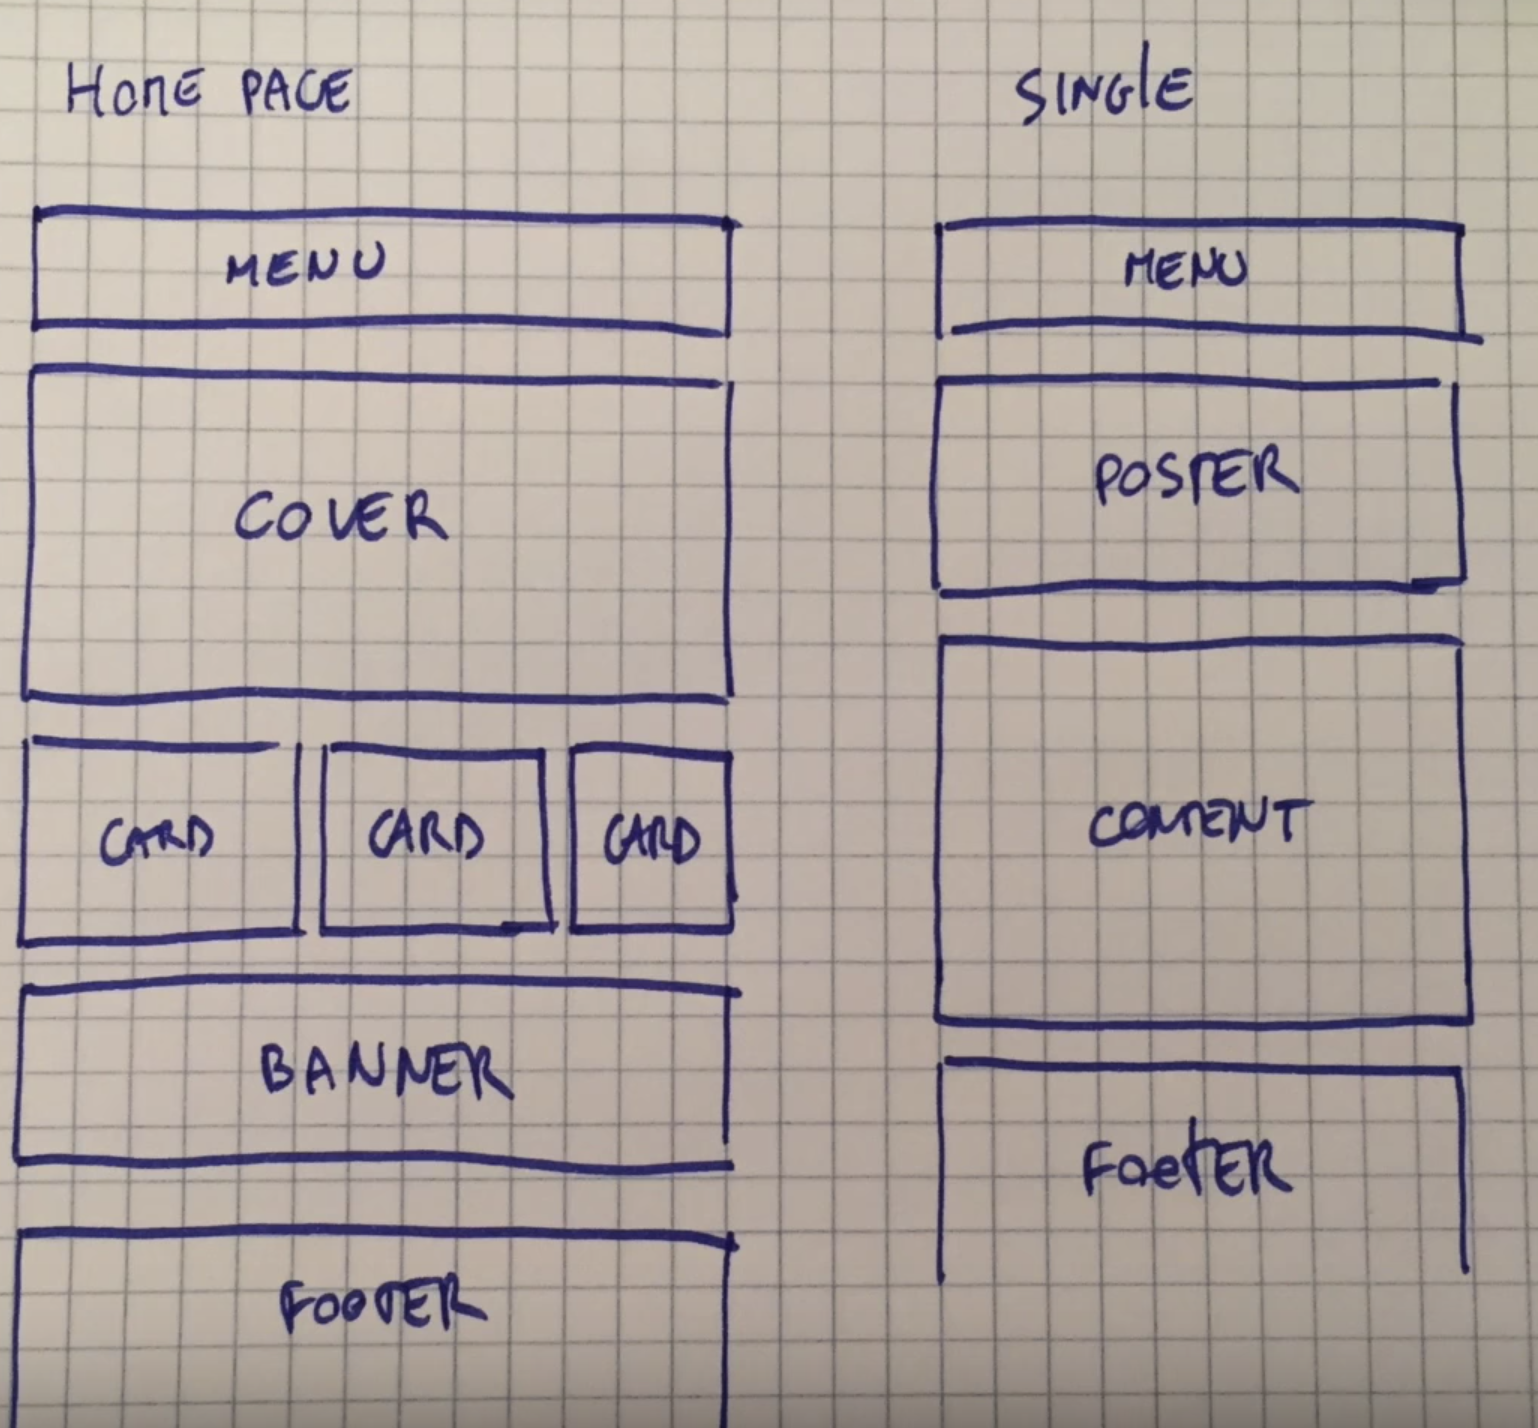 HOME PAGE
MENU
COVER
CARD CARD CARD
BANNER
FOOTER
SINGLE
MENU
POSTER
CONTENT
FOOTER